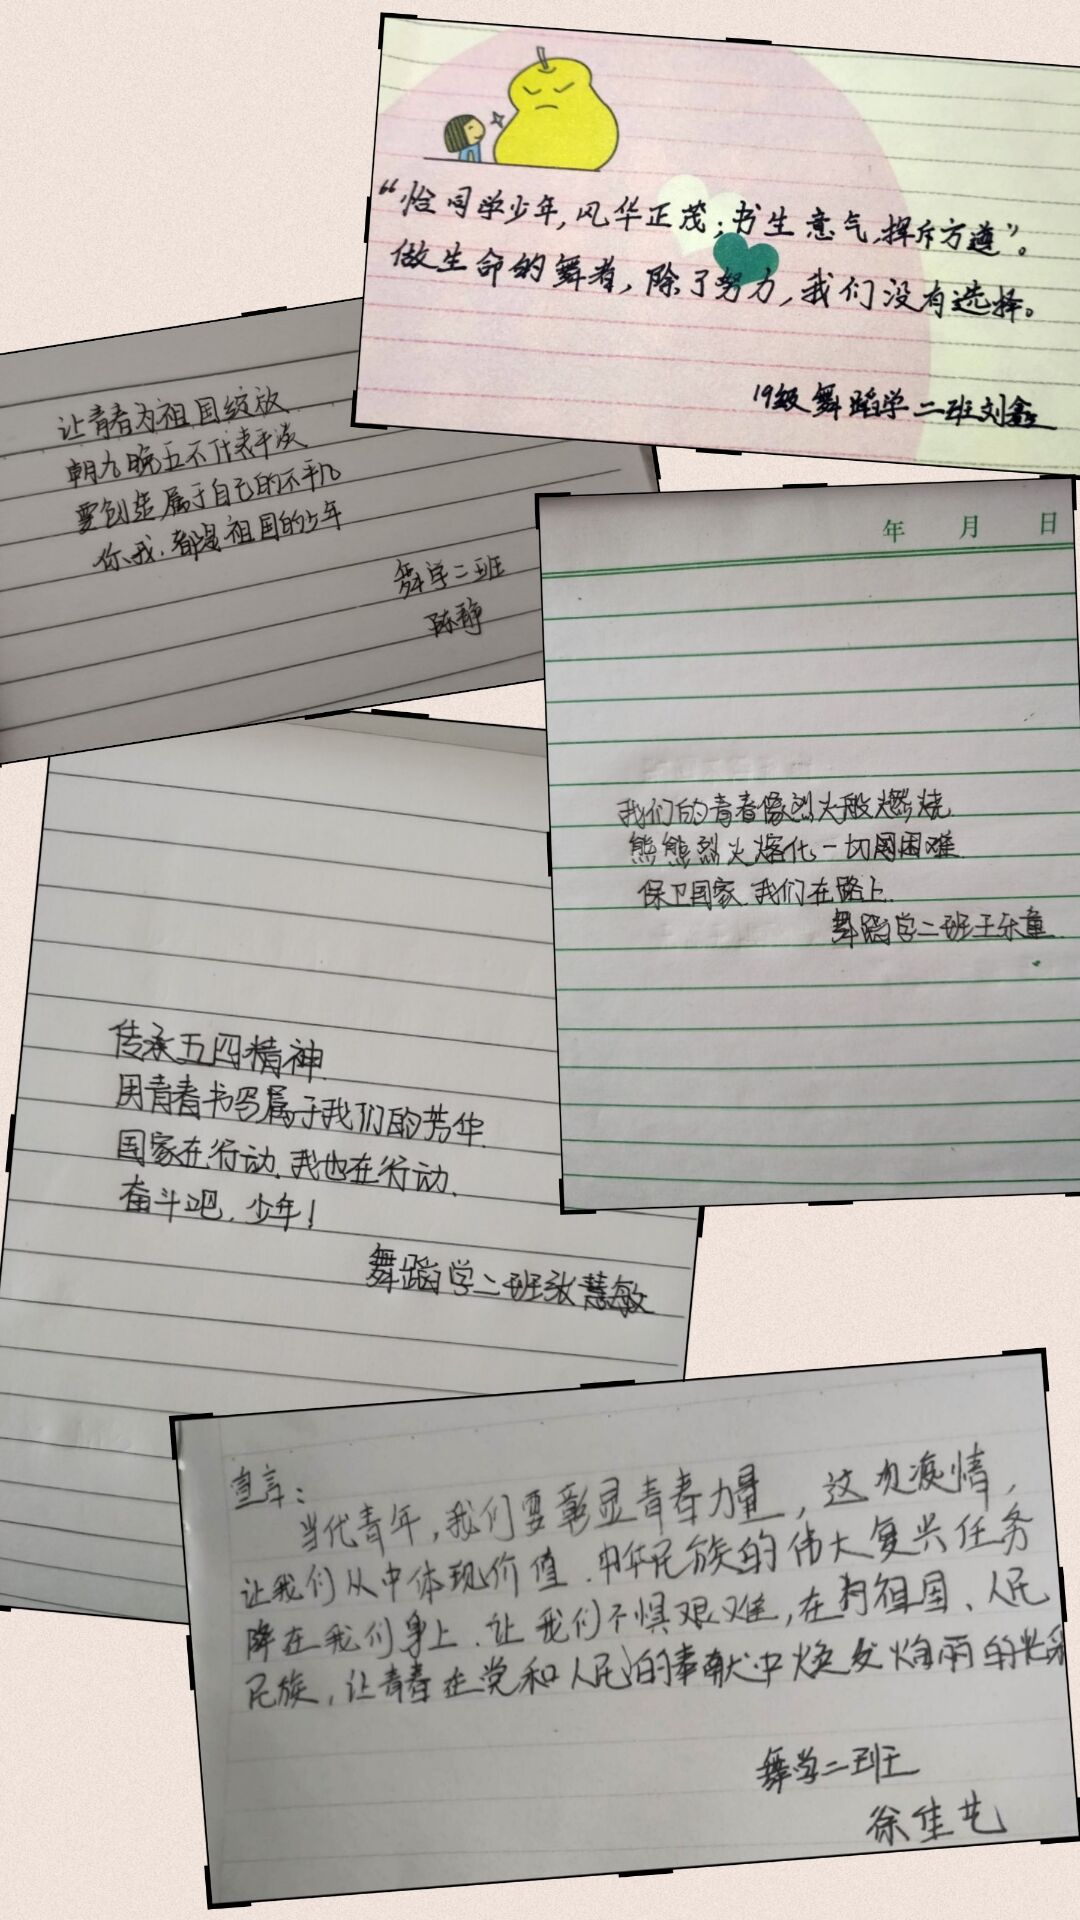 “恰同学少年,风华正茂;书生意气,挥斥方遒”。
做生命的舞者,除了努力,我们没有选择。
19级舞蹈学二班刘鑫
让青春为祖国绽放
朝九晚五不代表平淡
要创造属于自己的不平凡
你、我,都是祖国的少年
舞学二班
陈静
年 月 日
我们的青春像烈火般燃烧
熊熊烈火熔化一切困难
保卫国家.我们在路上.
舞蹈学二班王乐童
传承五四精神
用青春书写属于我们的芳华.
国家在行动.我也在行动.
奋斗吧.少年!
舞蹈学二班张慧敏
宣言:
当代青年,我们要彰显青春力量,这次疫情,
让我们从中体现价值.中华民族的伟大复兴任务
降在我们身上.让我们不惧艰难,在为祖国、人民
民族,让青春在党和人民的奉献中焕发绚丽的光彩
舞学二班
徐佳艺